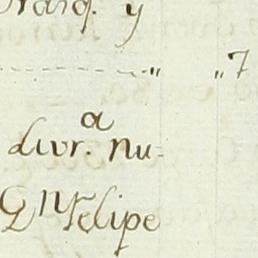 y
" "7
a
divr. nu-
Dn Felipe